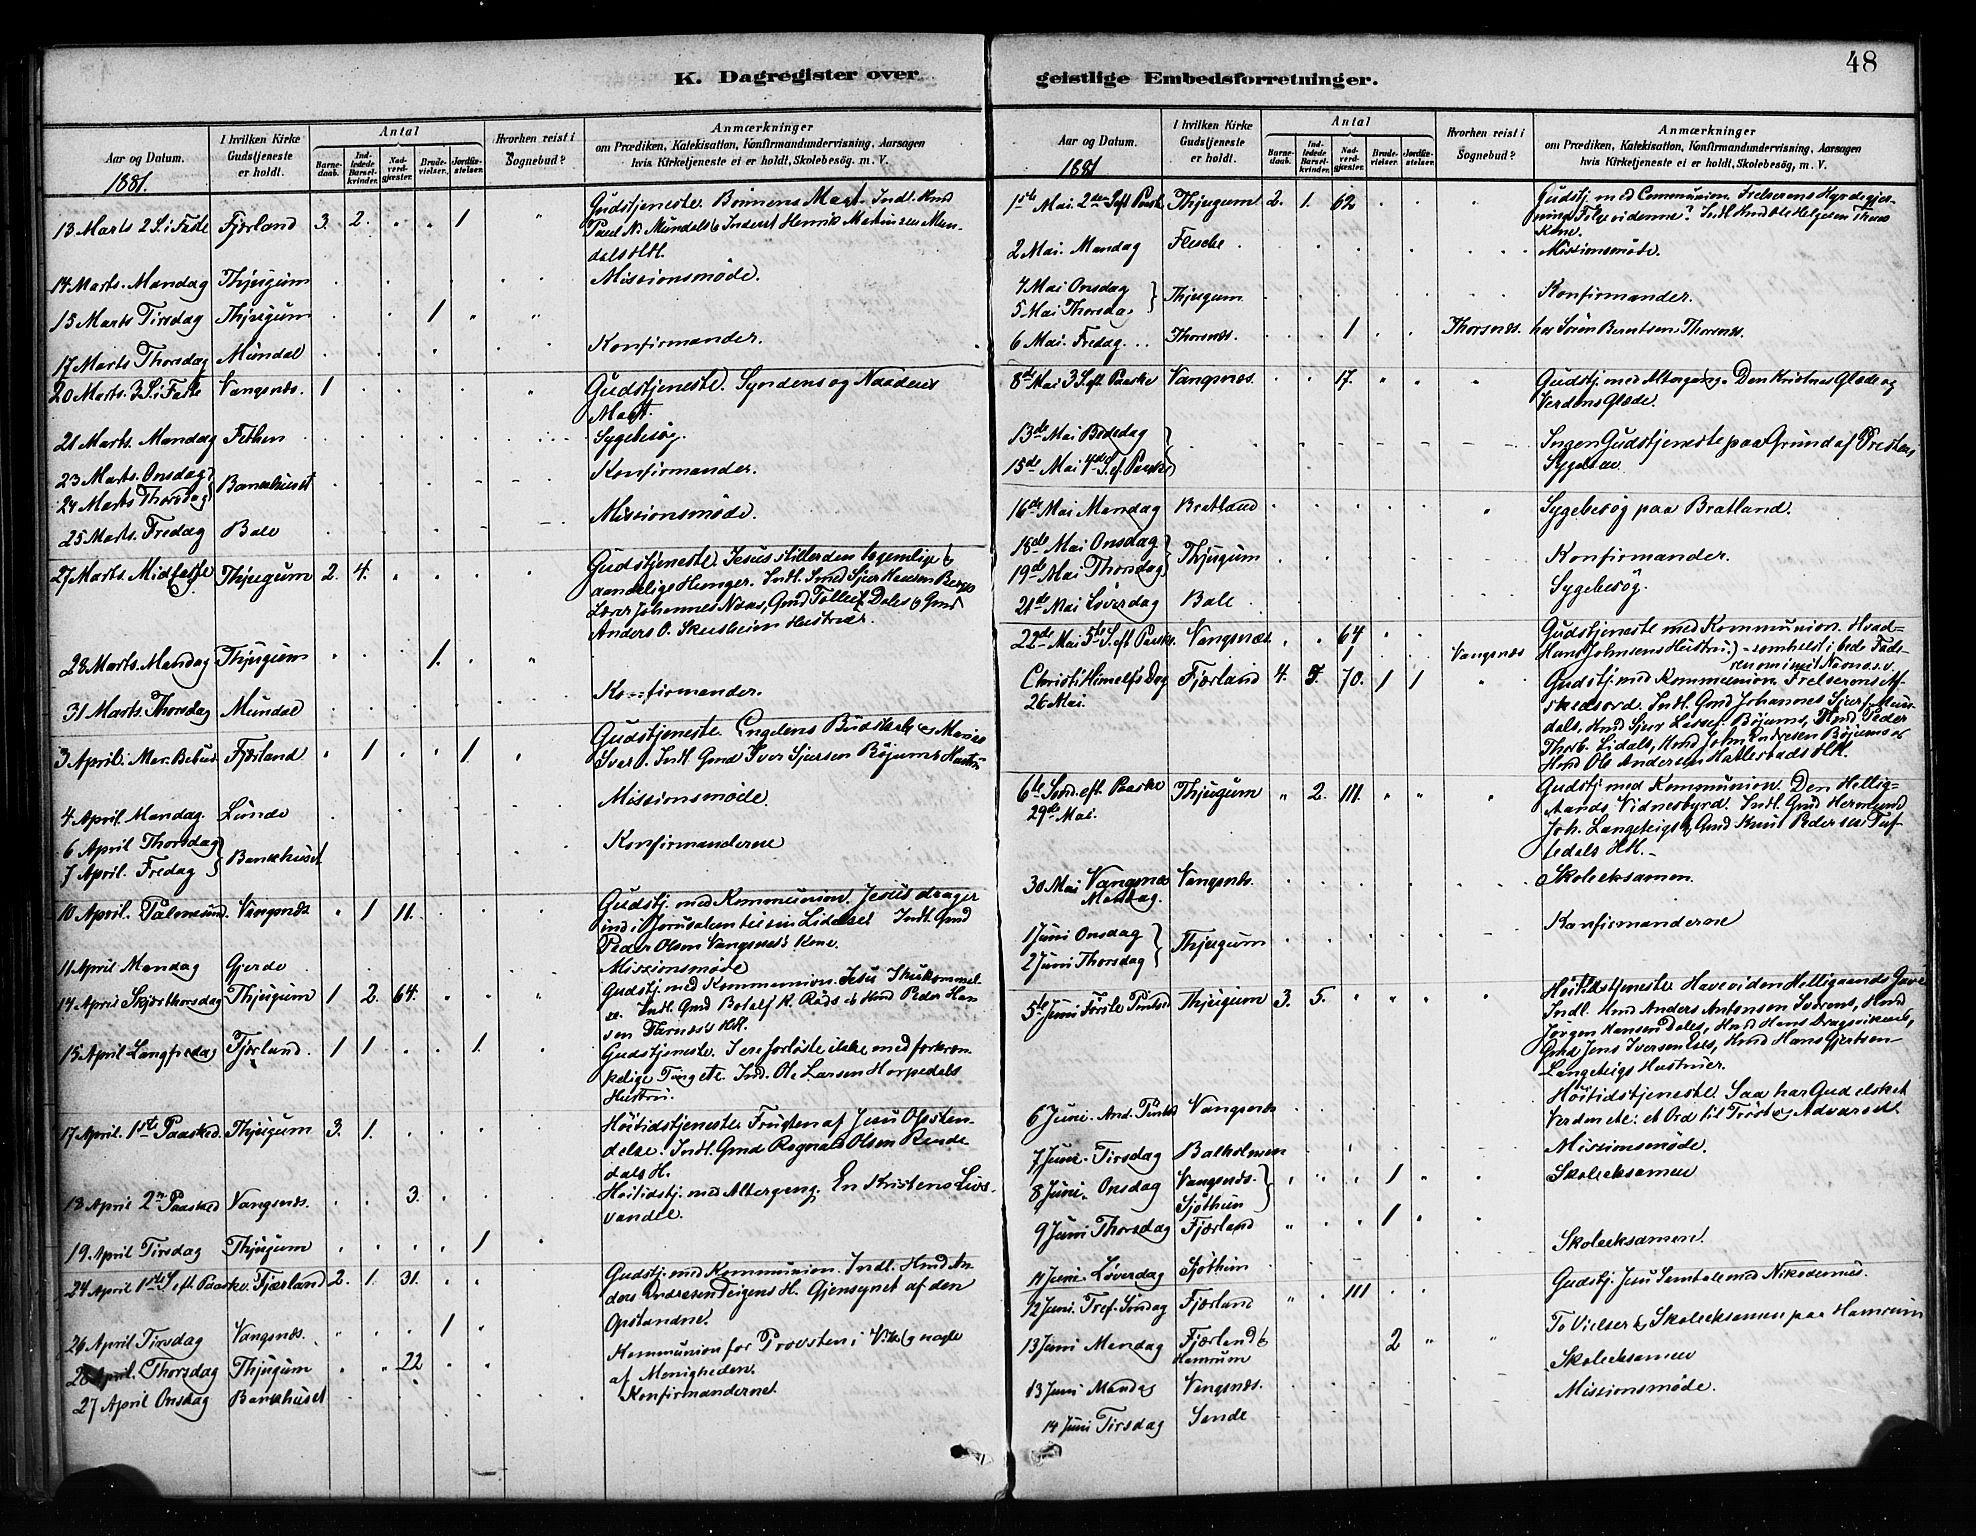 48
K. Dagregister over
geistlige Embedsforretninger.
Aar og Datum.
1881.
I hvilken Kirke Gudstjeneste er holdt.
Antal
Barnedaab.
Indledede Barselkvinder.
Nadverdgjæster.
Brudevielser.
Jordfæstelser.
Hvorhen reist i Sognebud?
Anmærkninger
om Prædiken, Katekisation, Konfirmandundervisning, Aarsagen
hvis Kirketjeneste ei er holdt, Skolebesøg, m. V.
13 Marts 2 S. i Faste Fjærland 3. 2. 1 Gudstjeneste. Bønnens Magt. Indl.
14 Marts. Mandag Thjugum Missionsmøde.
15 Marts Tirsdag Thjugum 1
17 Marts Thorsdag Mundal Konfirmander.
20 Marts. 3 S. i Faste Vangsnæs. 1 Gudstjeneste. Syndens og Naadens
Magt.
21 Marts. Mandag Fethen Sygebesøg.
23 Marts. Onsdag
24 Marts Thorsdag } Bankhuset Konfirmander.
25 Marts. Fredag Bale Missionsmøde.
27 Marts. Midfaste Thjugum 2. 4. Gudstjeneste. Jesus stiller den legemlige &
aandelige Hunger. Indl.
Lærer Johannes
Anders O. Skusheim Hustruer.
28 Marts. Mandag Thjugum 1.
31 Marts. Thorsdag Mundal Konfirmander.
3 April. Mar. Bebud. Fjærland 1 1 Gudstjeneste Engelens Budskab og Marias
Svar. Indl. Gmd Iver Sjursen Bøjums Hustru
4 April. Mandag. Lunde Missionsmøde.
6 April Thorsdag
7 April. Fredag } Bankhuset Konfirmanderne
10 April. Palmesønd. Vangsnæs 1 11. Gudstj. med Kommunion. Jesus drager
ind i Jerusalem til sin Lidelse. Indl. Gmd
Peder Olsen Vangsnæs's Kone.
11 April Mandag Gjerde Missionsmøde
14 April Skjærthorsdag Thjugum 1 2. 64. Gudstj. med Kommunion. Jesu
Indl. Gmd Botolf R.
15 April Langfredag Fjærland. 1 1 1. Gudstjeneste. I ere forløste ikke med forkræn-
kelige Ting etc. Ind. Ole Larsen Horpedals
Hustru.
17 April. 1ste Paasked. Thjugum 3. 1. Høitidstjeneste. Frugten af Jesu Opstan-
delse. Indl. Gmd Ragnald Olsen
dals H.
18 April 2n Paasked Vangsnæs. 3. Høitidstj. med Altergang. En Kristens Livs-
vandel.
19 April Tirsdag Thjugum 1
24 April 1ste S. eft. Paaske. Fjærland 2. 1. 31. Gudstj. med Kommunion. Indl. Hmd An-
ders Andresen Teigens H. Gjensynet af den
Opstandne.
26 April Tirsdag Vangsnæs. 1
28 April. Thorsdag Thjugum 22 Kommunion for Provsten i Vik og nogle
af Menigheden.
27 April Onsdag Bankhuset Konfirmanderne.
Aar og Datum.
1881
I hvilken Kirke Gudstjeneste er holdt.
Antal
Barnedaab.
Indledede Barselkvinder.
Nadverdgjæster.
Brudevielser.
Jordfæstelser.
Hvorhen reist i Sognebud?
Anmærkninger
om Prædiken, Katekisation, Konfirmandundervisning, Aarsagen
hvis Kirketjeneste ei er holdt, Skolebesøg, m. V.
1ste Mai. 2den S. eft Paaske Thjugum 2. 1. 62. Gudstj. med Communion. Frelserens Hyrdegjer-
2 Mai. Mandag Flesche Missionsmøde.
4 Mai Onsdag
5 Mai Thorsdag } Thjugum Konfirmander.
6 Mai. Fredag Thorsnæs. 1 Thorsnæs. hos Søren Berntsen Thorsnæs.
8de Mai 3 S. eft. Paaske Vangsnæs. 17. Gudstj. med Altergang. Den Kristnes Glæde og
Verdens Glæde.
13de Mai Bededag
15de Mai 4de S. ef. Paaske } Ingen Gudstjeneste paa Grund af Prestens
16de Mai Mandag Bratland Sygebesøg paa Bratland.
18de Mai Onsdag
19de Mai Thorsdag } Thjugum Konfirmander.
21de Mai Løverdag Bale Sygebesøg.
22de Mai 5te S. eft Paaske. Vangsnæs. 64 Gudstjeneste med Kommunion. Hvad-
1 Vangsnæs Hans Johnsens Hustru) somhelst i bede Fade-
ren om i mit Navn o.s.v.
Christi Himelfs Dag Fjærland 4. 5. 70. 1 1 Gudstj. med Kommunion. Frelserens Af-
26 Mai. skedsord. Indl. Gmd Johannes Sjurs. Mun-
dals, Hmd Sjur Bøjums, Hmd Peder
Thorb. Lidals, Hmd John Andresen Bøjums og
Hmd Ole Andersen Hatlestads HH.
6te Sønd. eft. Paaske Thjugum 2. 111. Gudstj med Kommunion. Den Hellig-
29de Mai. Aands Vidnesbyrd. Indl. Gmd Hermund
Joh. Langeteigs & Gmd Knut Pedersen Tuf-
tedals HH.
30 Mai Vangsnæs Skoleeksamen.
Mandag.
1 Juni Onsdag
2 Juni Thorsdag } Thjugum Konfirmanderne
5te Juni Første Pintsed Thjugum 3. 5. Høitidstjeneste Have vi den Helligaands Gave
Indl. Hmd Anders Antonsen
Jørgen Hansen Dales, Hmd Hans Dragsvikens,
Gmd Jens Iversen Eses, Hmd Hans Gjertsen
Langeteigs Hustruer.
6 Juni. And. Pintsd Vangsnæs Høitidstjeneste. Saa har Gud elsket
Verden etc: et Ord til Trøst og Advarsel.
7 Juni. Tirsdag Balholmen Missionsmøde.
8 Juni. Onsdag Vangsnæs. } 1 Skoleeksamen
Sjøthun
9 Juni Thorsdag Fjærland 1
11 Juni. Løverdag Sjøthun Skoleeksamen.
12 Juni. Tref. Søndag Fjærland 111 Gudstj. Jesu Samtale med Nikodemus.
13 Juni Mandag Fjærland & 2 To Vielser & Skoleeksamen paa Hamrum
Hamrum
13 Juni Mandag Vangsnæs. Skoleeksamen
14 Juni Tirsdag Sende Missionsmøde.